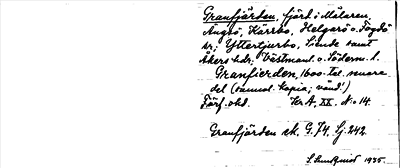 Granfjärden, fjärd i Mälaren,
Ängsö, Kärrbo, Helgarö o. Fogdö
sn; Yttertjurbo, Siende samt
Åkers hdr; Västmanl. o. Söderm. l.
Granfierden, 1600-tal. mura
del (samml. kopia; vänd!)
Förf. okd. KrA, XX. No 14.
Granfjärden sk. G. 74, Lj. 242.
1935.